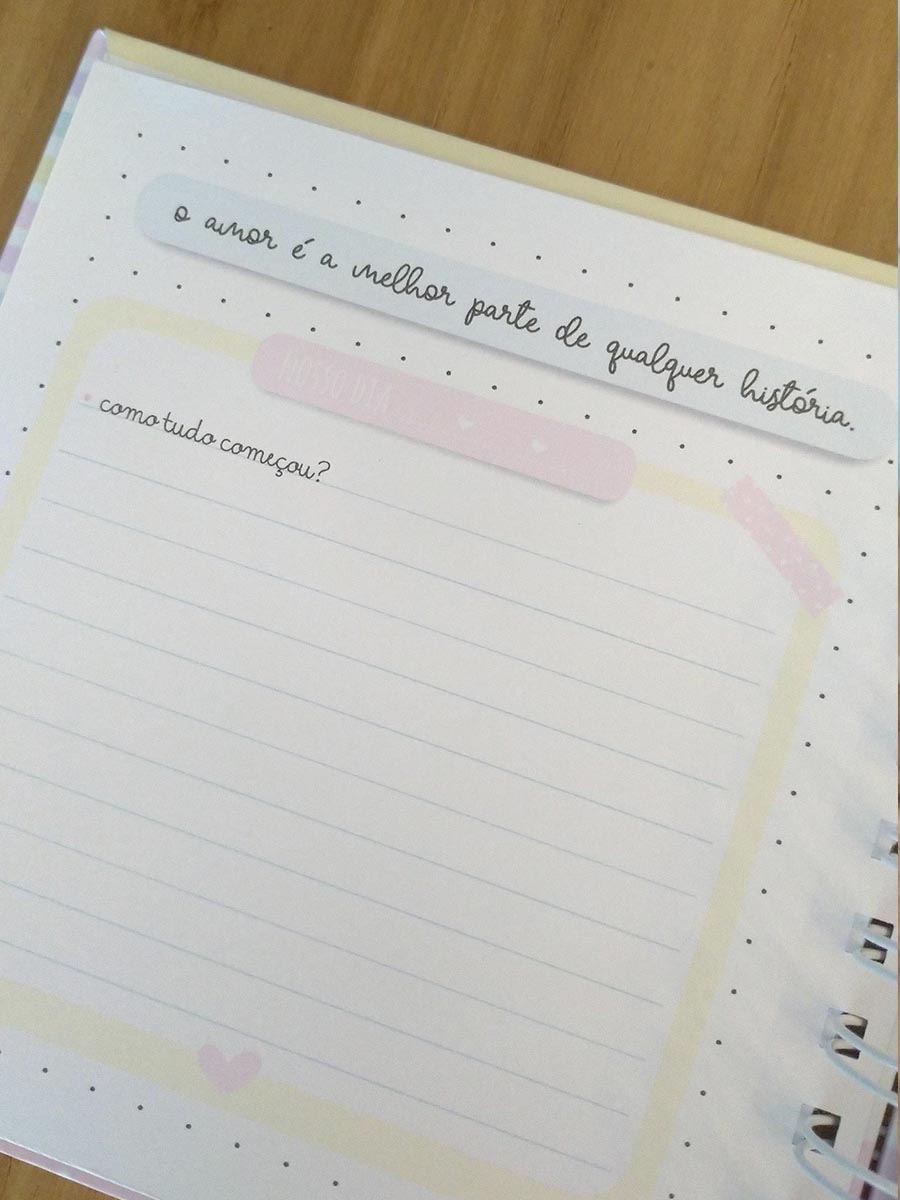 o amor é a melhor parte de qualquer história.
NOSSO DIA
como tudo começou?